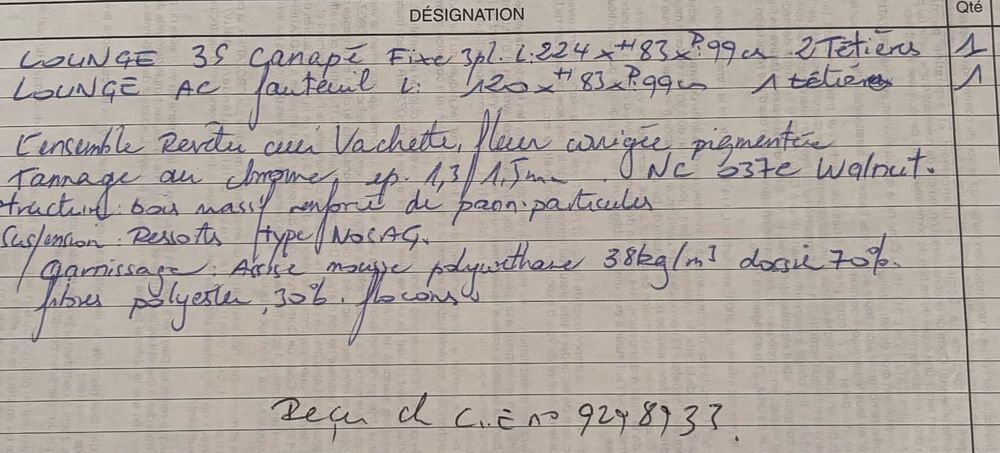 DÉSIGNATION Qté
LOUNGE 3S Canapé Fixe 3pl. L:224 x H 83 x P.99cm 2 Tétières 1
LOUNGE AC fauteuil L: 120 x H 83 x P.99cm 1 tétière 1
L'ensemble Revêtu cuir Vachette, fleur corrigée pigmentée
Tannage au chrome, ep. 1,3/1,5mm NC 637E Walnut.
structure: bois massif renforcé de pann. particules
Suspension. Ressorts type NOSAG.
Garnissage: Assise mousse polyuréthane 38kg/m³ dossier 70%
fibres polyester, 30% flocons
Reçu ch C.E n°